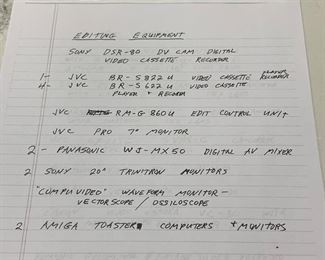 EDITING EQUIPMENT
SONY DSR-80 DV CAM DIGITAL
VIDEO CASSETTE RECORDER
1- JVC BR-S822U VIDEO CASSETTE PLAYER RECORDER
4- JVC BR-S622U VIDEO CASSETTE
PLAYER + RECORDER
JVC RM-G860U EDIT CONTROL UNIT
JVC PRO 7" MONITOR
2- PANASONIC WJ-MX50 DIGITAL AV MIXER
2 SONY 20" TRINITRON MONITORS
"COMPUVIDEO" WAVEFORM MONITOR-
VECTORSCOPE/OSSILOSCOPE
2 AMIGA TOASTER COMPUTERS + MONITORS